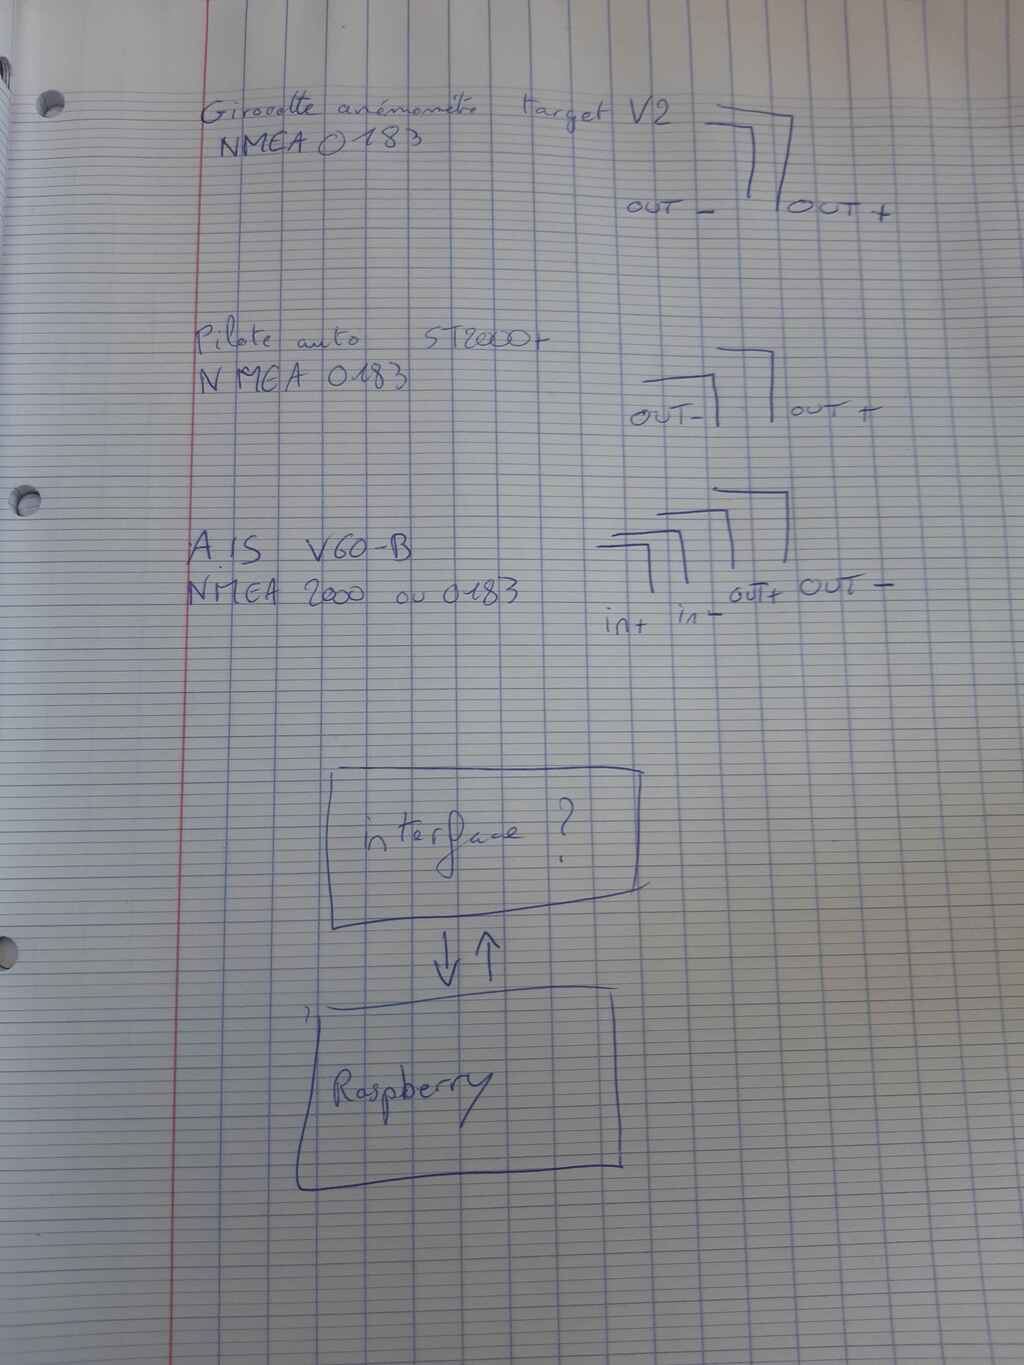 Girouette anémomètre target V2
NMEA 0183
OUT - OUT +
Pilote auto ST2000+
NMEA 0183
OUT- OUT +
AIS V60-B
NMEA 2000 ou 0183
in+ in- OUT+ OUT -
interface ?
Raspberry